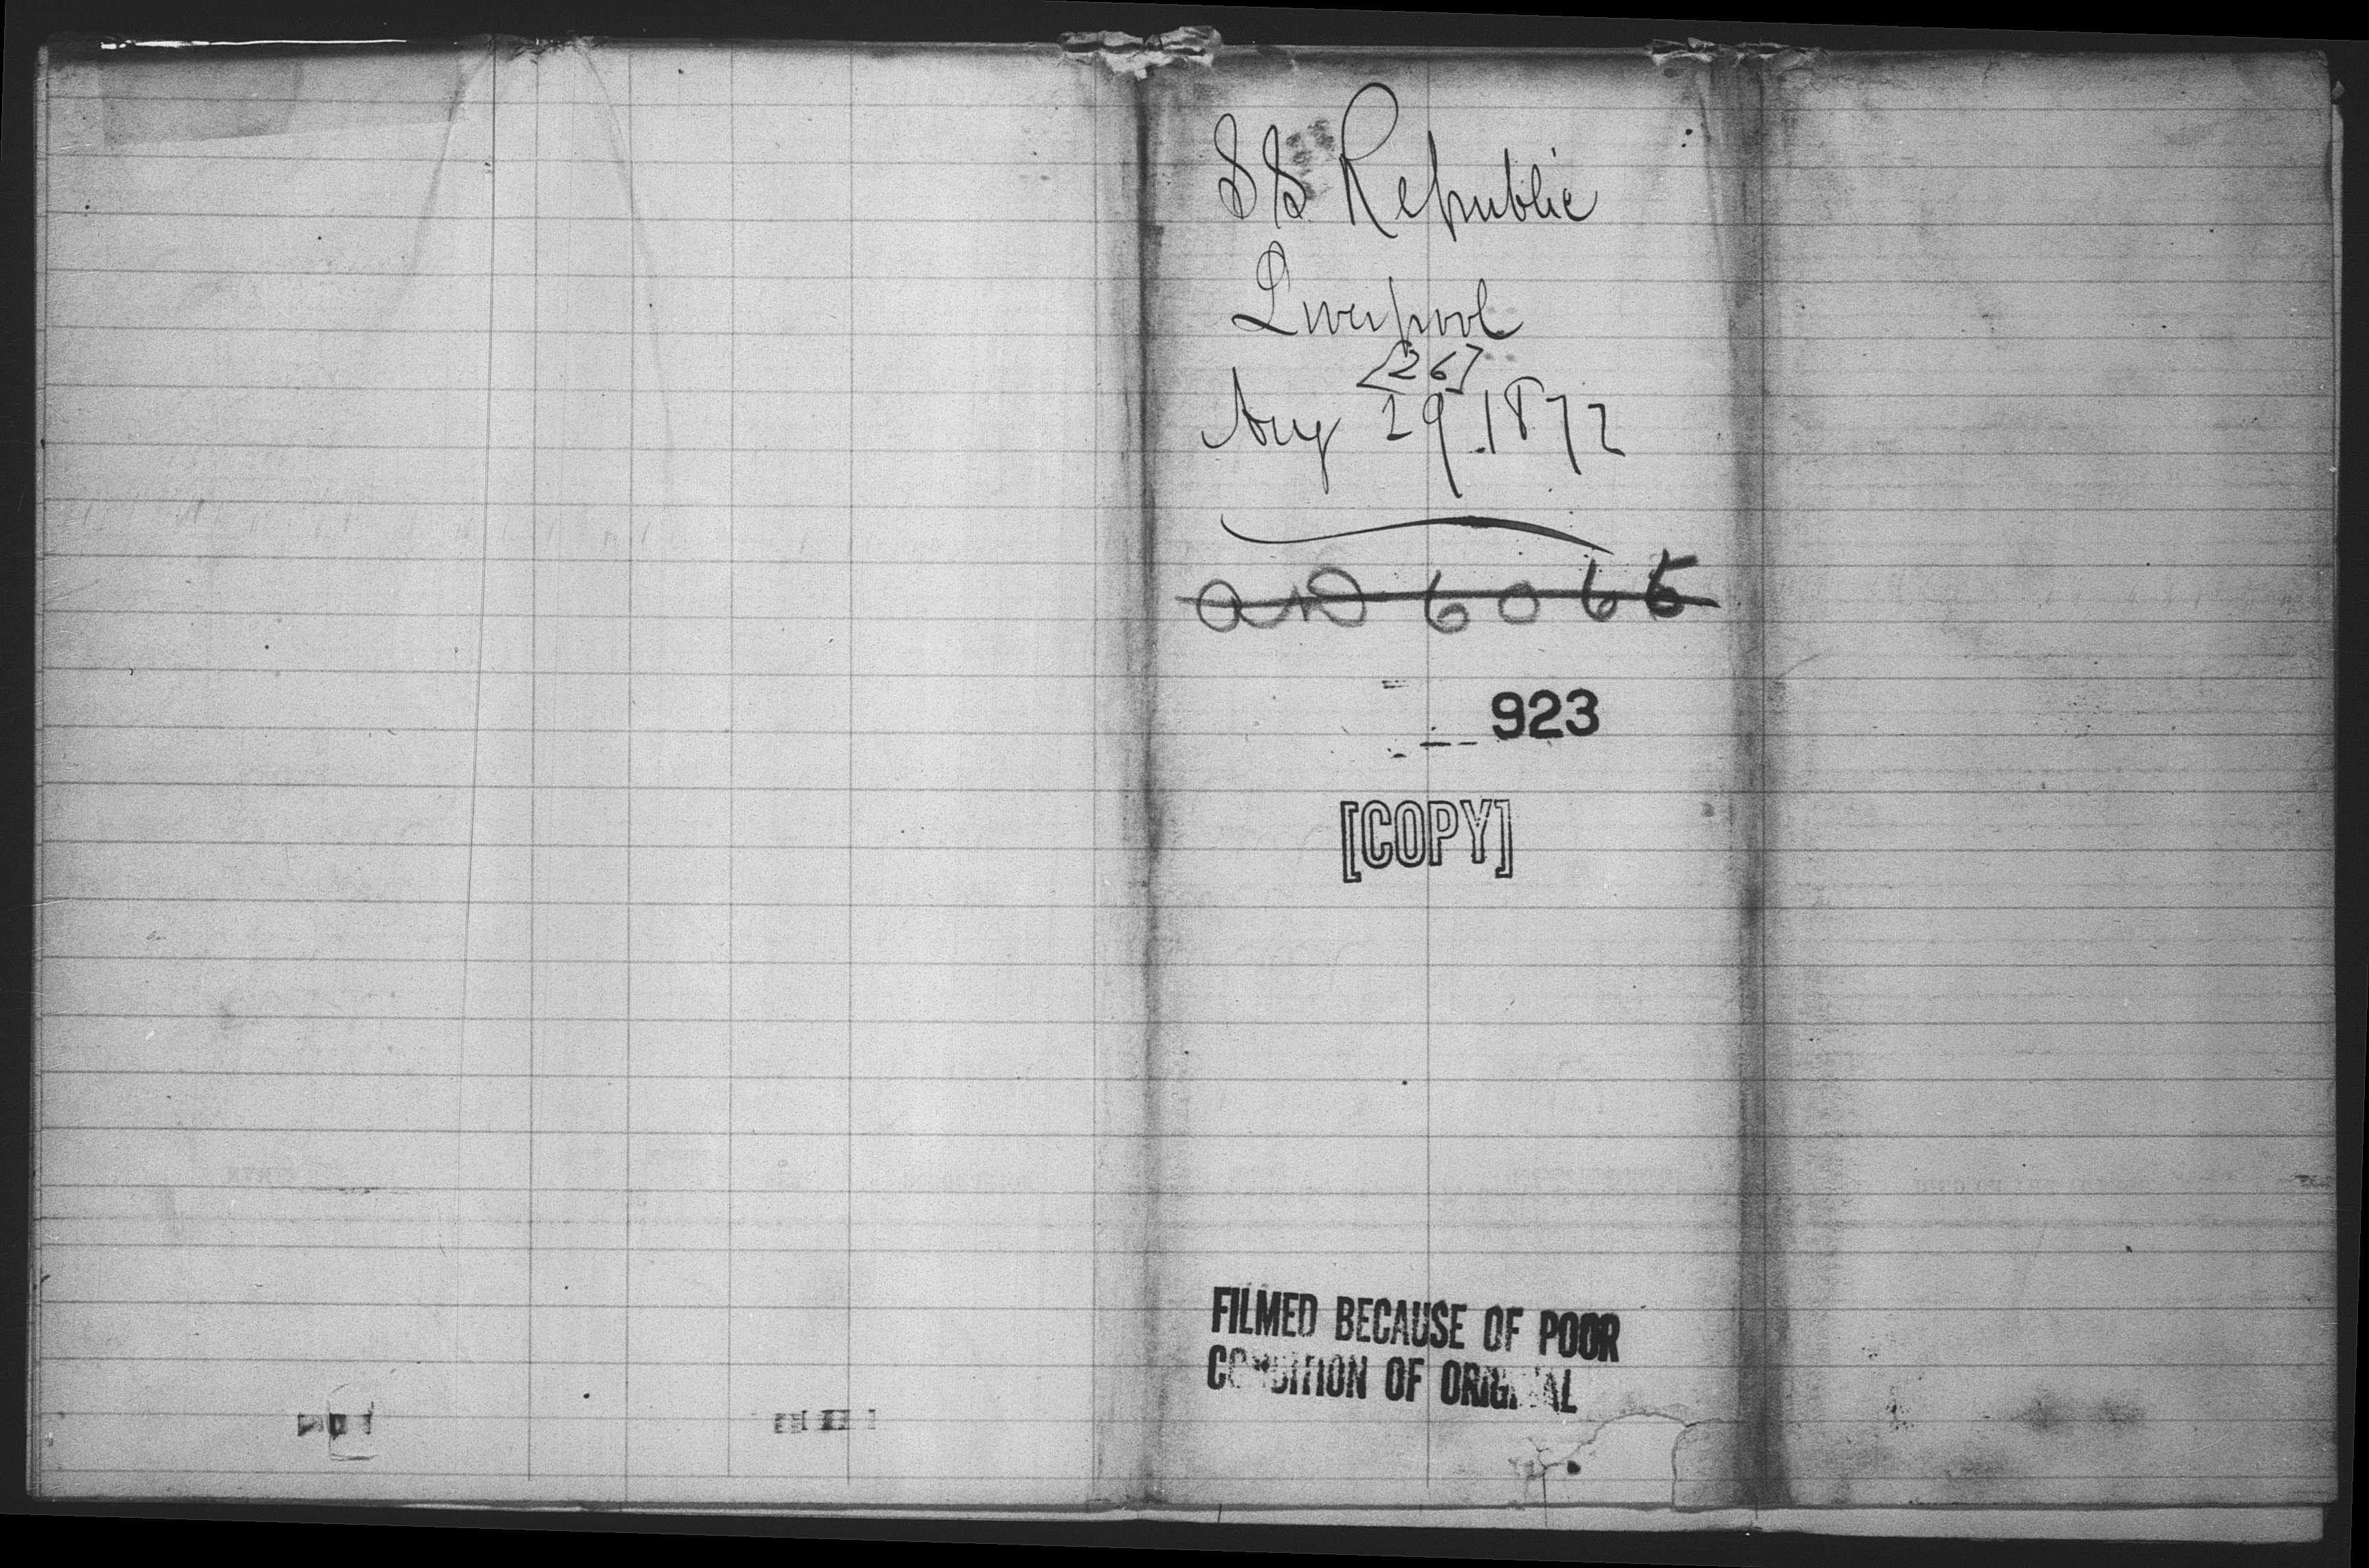 SS Republic
Liverpool
[26]
Aug 29. 1872
6065
923
[COPY]
FILMED BECAUSE OF POOR
CONDITION OF ORIGINAL